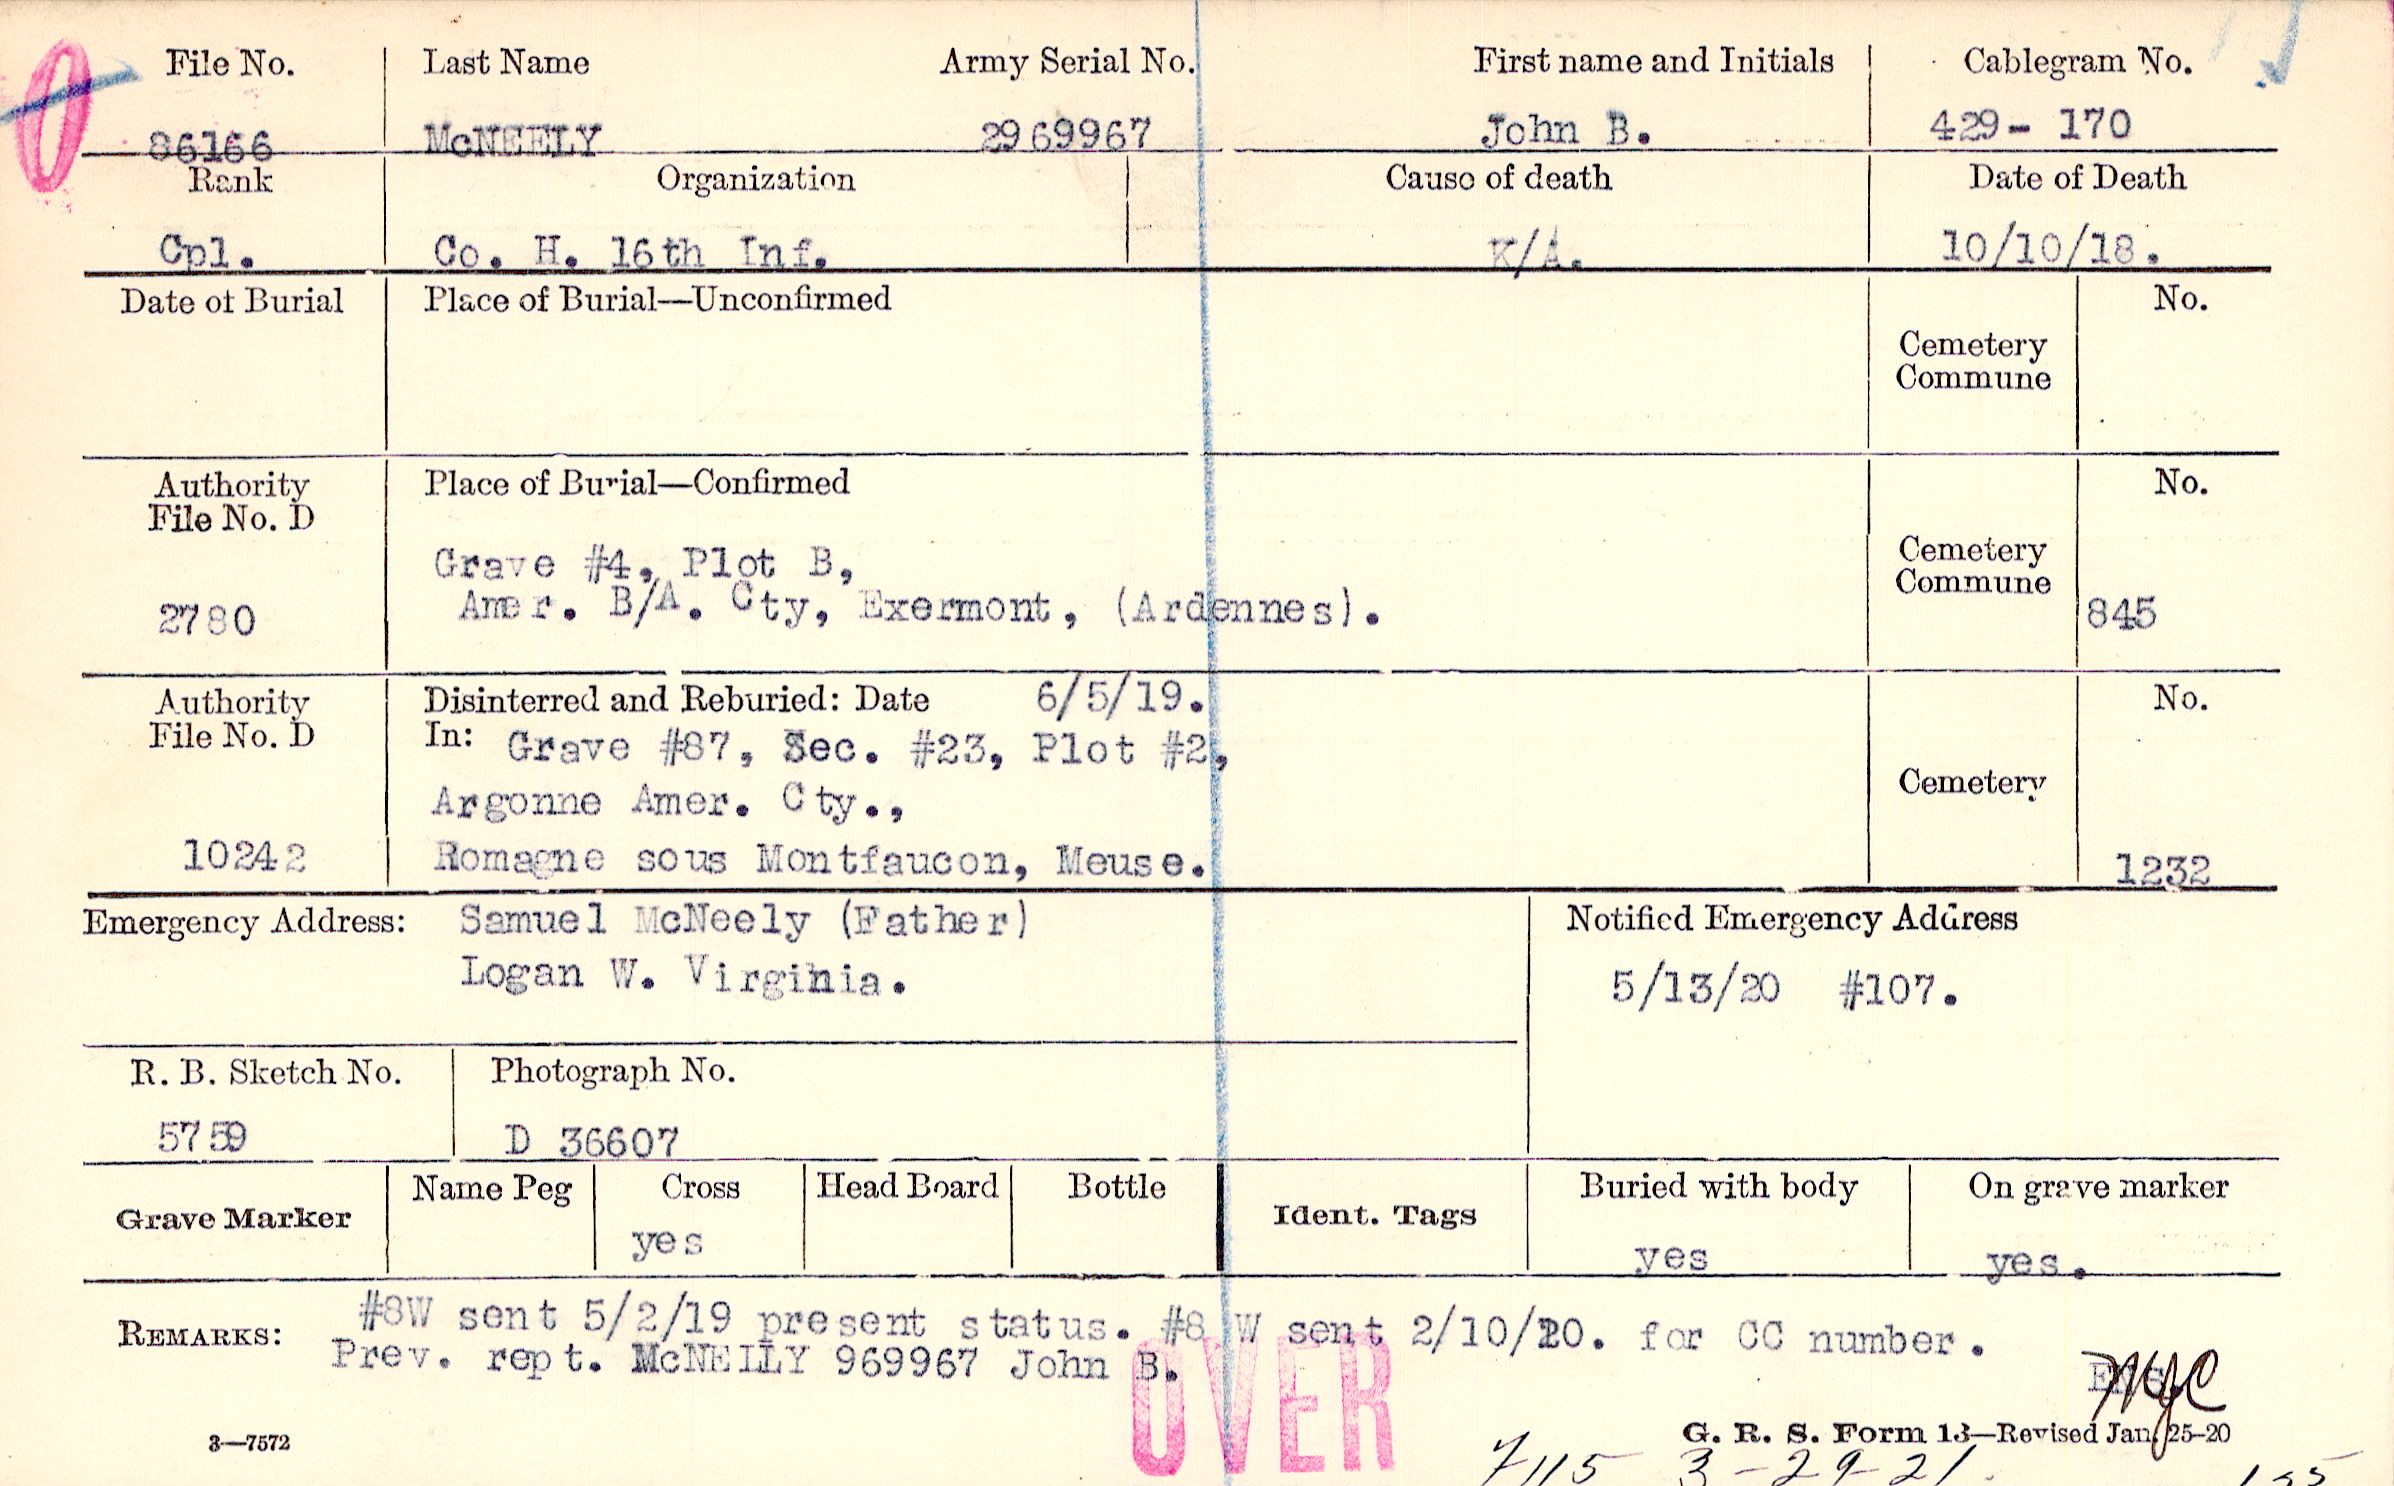 File No. Last Name Army Serial No. First name and Initials Cablegram No.
86166 McNEELY 2969967 John B. 429- 170
Rank Organization Cause of death Date of Death
Cpl. Co. H. 16th Inf. K/A. 10/10/18.
Date of Burial Place of Burial—Unconfirmed No.
Cemetery
Commune
Authority Place of Burial—Confirmed No.
File No. D
Grave #4, Plot B, Cemetery
Commune
2780 Amer. B/A. Cty, Exermont, (Ardennes). 845
Authority Disinterred and Reburied: Date 6/5/19. No.
File No. D In: Grave #87, Sec. #23, Plot #2,
Argonne Amer. Cty., Cemetery
10242 Romagne sous Montfaucon, Meuse. 1232
Emergency Address: Samuel McNeely (Father) Notified Emergency Address
Logan W. Virginia. 5/13/20 #107.
R. B. Sketch No. Photograph No.
5759 D 36607
Grave Marker Name Peg Cross Head Board Bottle Ident. Tags Buried with body On grave marker
yes yes yes.
REMARKS: #8W sent 5/2/19 present status. #8 W sent 2/10/20. for CC number.
Prev. rept. McNEILY 969967 John B.
OVER
3—7572 G. R. S. Form 13—Revised Jan. 25-20
7115 3-29-21.